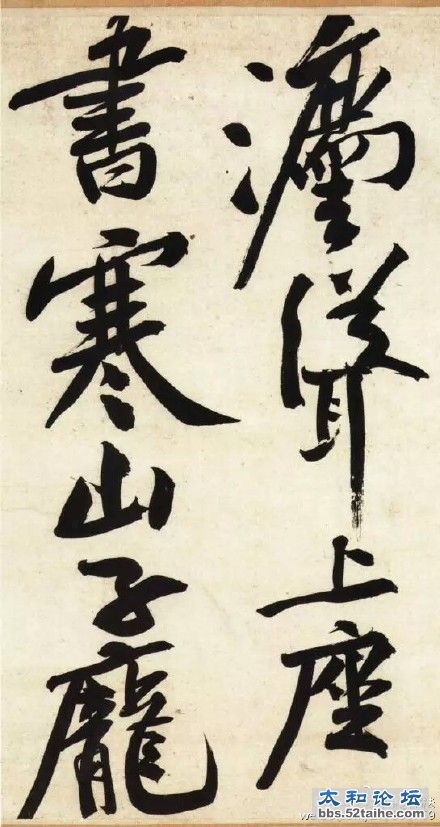 灋聳上座
書寒山子龐
太和论坛
bbs.52taihe.com